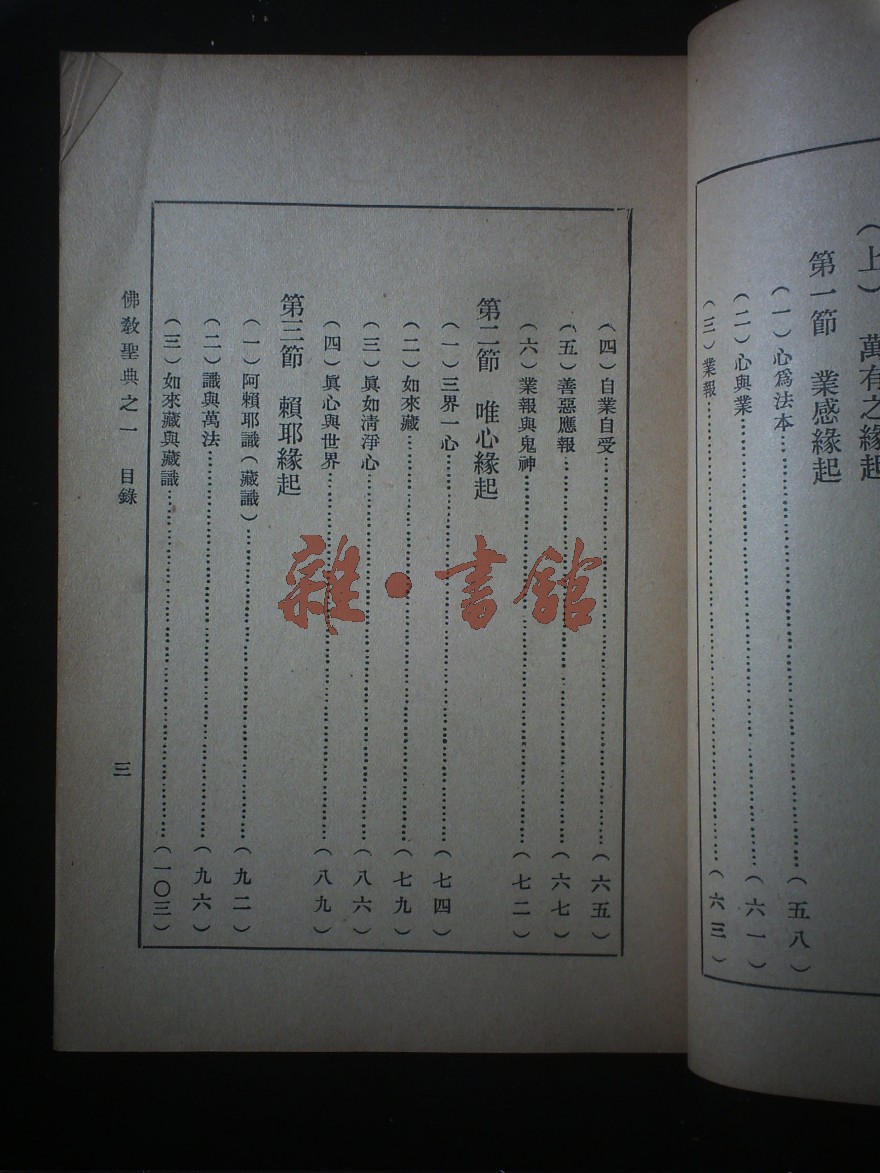 （上）　萬有之緣起
第一節　業感緣起
（一）心爲法本……（五八）
（二）心與業……（六一）
（三）業報……（六三）
（四）自業自受……（六五）
（五）善惡應報……（六七）
（六）業報與鬼神……（七二）
第二節　唯心緣起
（一）三界一心……（七四）
（二）如來藏……（七九）
（三）眞如清淨心……（八六）
（四）眞心與世界……（八九）
第三節　賴耶緣起
（一）阿賴耶識（藏識）……（九二）
（二）識與萬法……（九六）
（三）如來藏與藏識……（一〇三）
佛教聖典之一　目錄　三
雜·書館